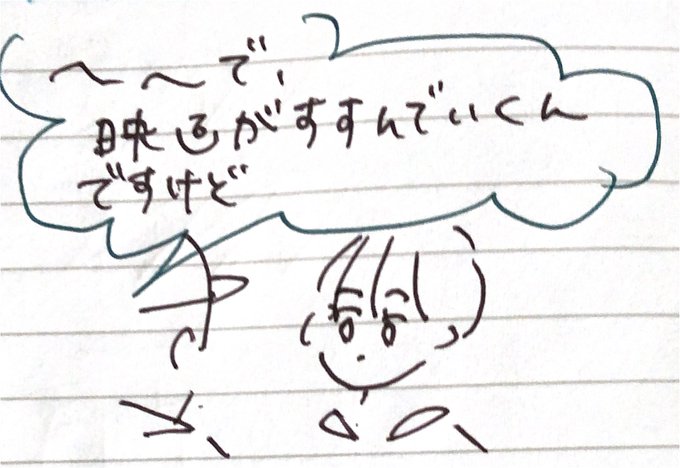 〜〜で、
映画がすすんでいくん
ですけど